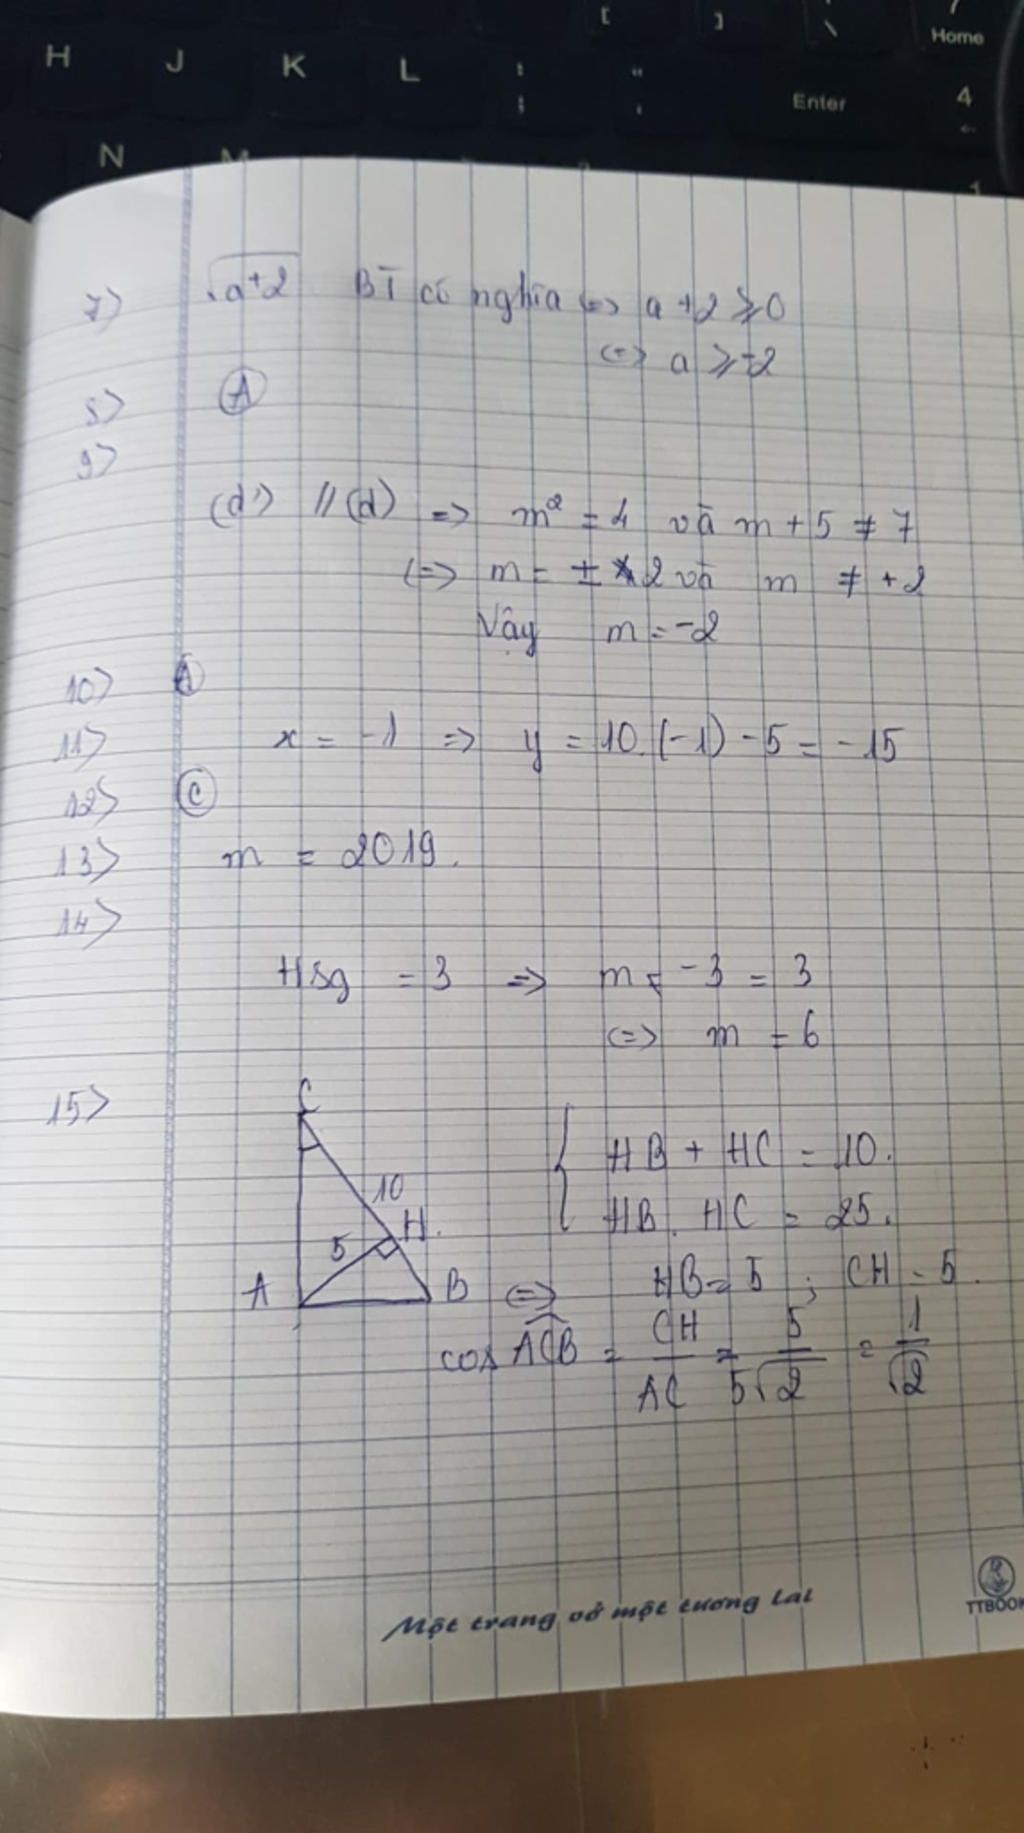 [ ] \ Home
H J K L : ; " ' Enter 4
N M
7) √a+2 BT có nghĩa <=> a + 2 ⩾ 0
<=> a ⩾ -2
8) A
9)
(d') // (d) => m² = 4 và m + 5 ≠ 7
<=> m = ± 2 và m ≠ +2
Vậy m = -2
10) A
11) x = -1 => y = 10.(-1) - 5 = -15
12) C
13) m = 2019.
14)
HSg = 3 => m - 3 = 3
<=> m = 6
15) C
HB + HC = 10.
10
HB . HC = 25.
H
5
A B <=> HB = 5 ; CH = 5.
cos ACB = CH/AC = 5/5√2 = 1/√2
Một trang vở một tương lai
TTBOOK